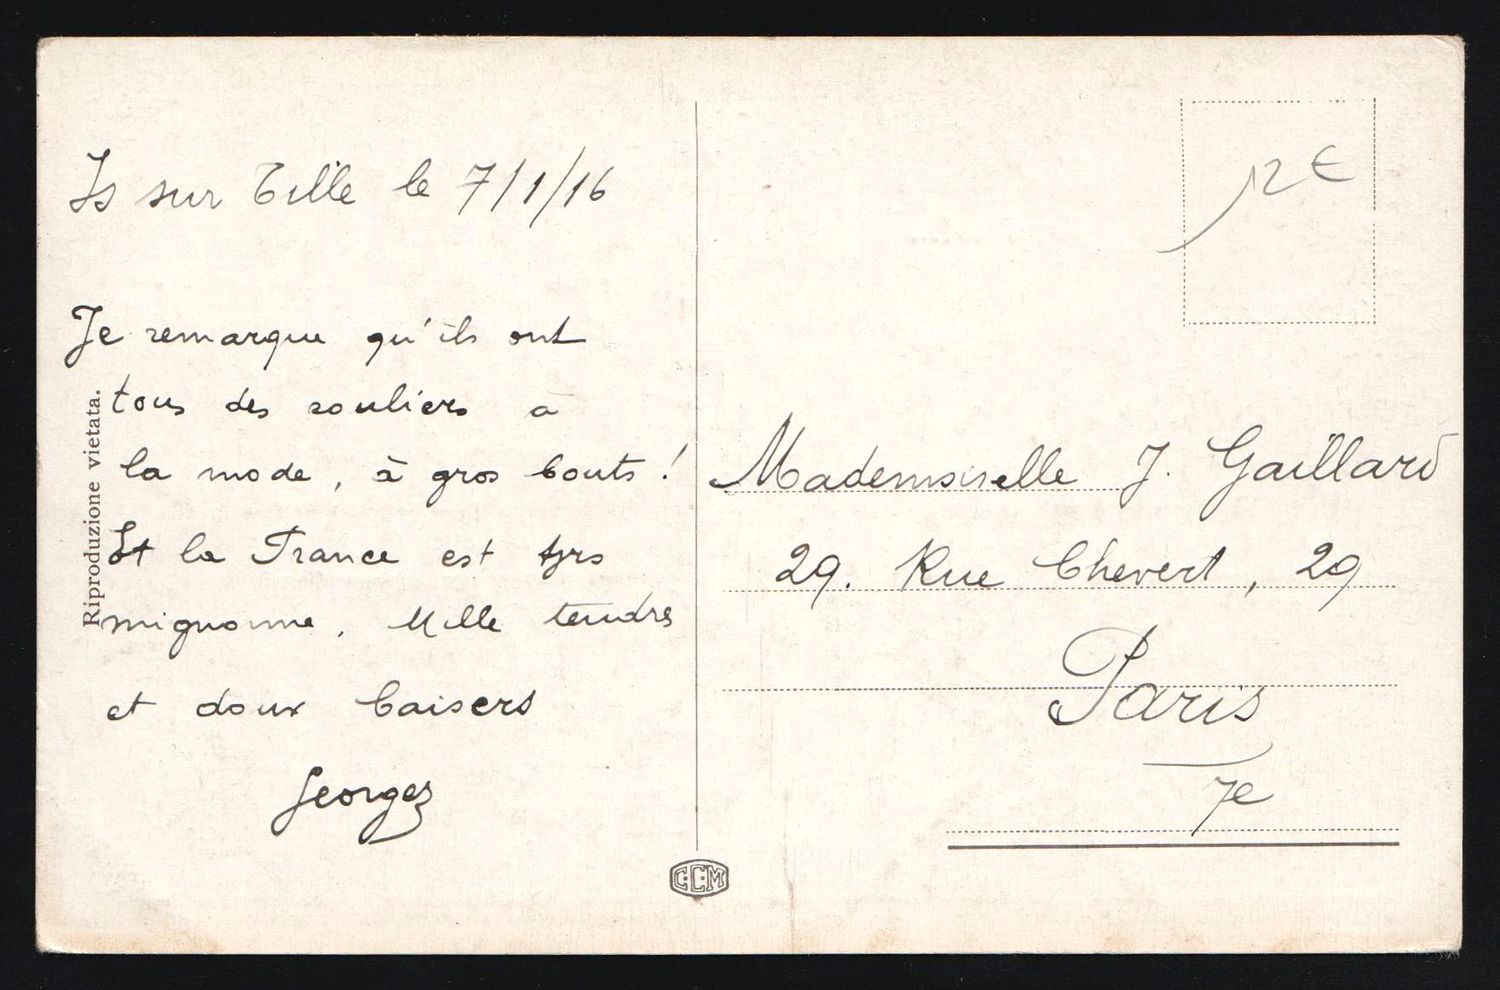 Is sur Tille le 7/1/16
Je remarque qu'ils ont
tous des souliers a
la mode, à gros bouts !
Et la France est tjrs
mignonne. Mille tendres
et doux baisers
Georges
Riproduzione vietata.
C.C.M
12 €
Mademoiselle J. Gaillard
29. Rue Chevert, 29
Paris
7e